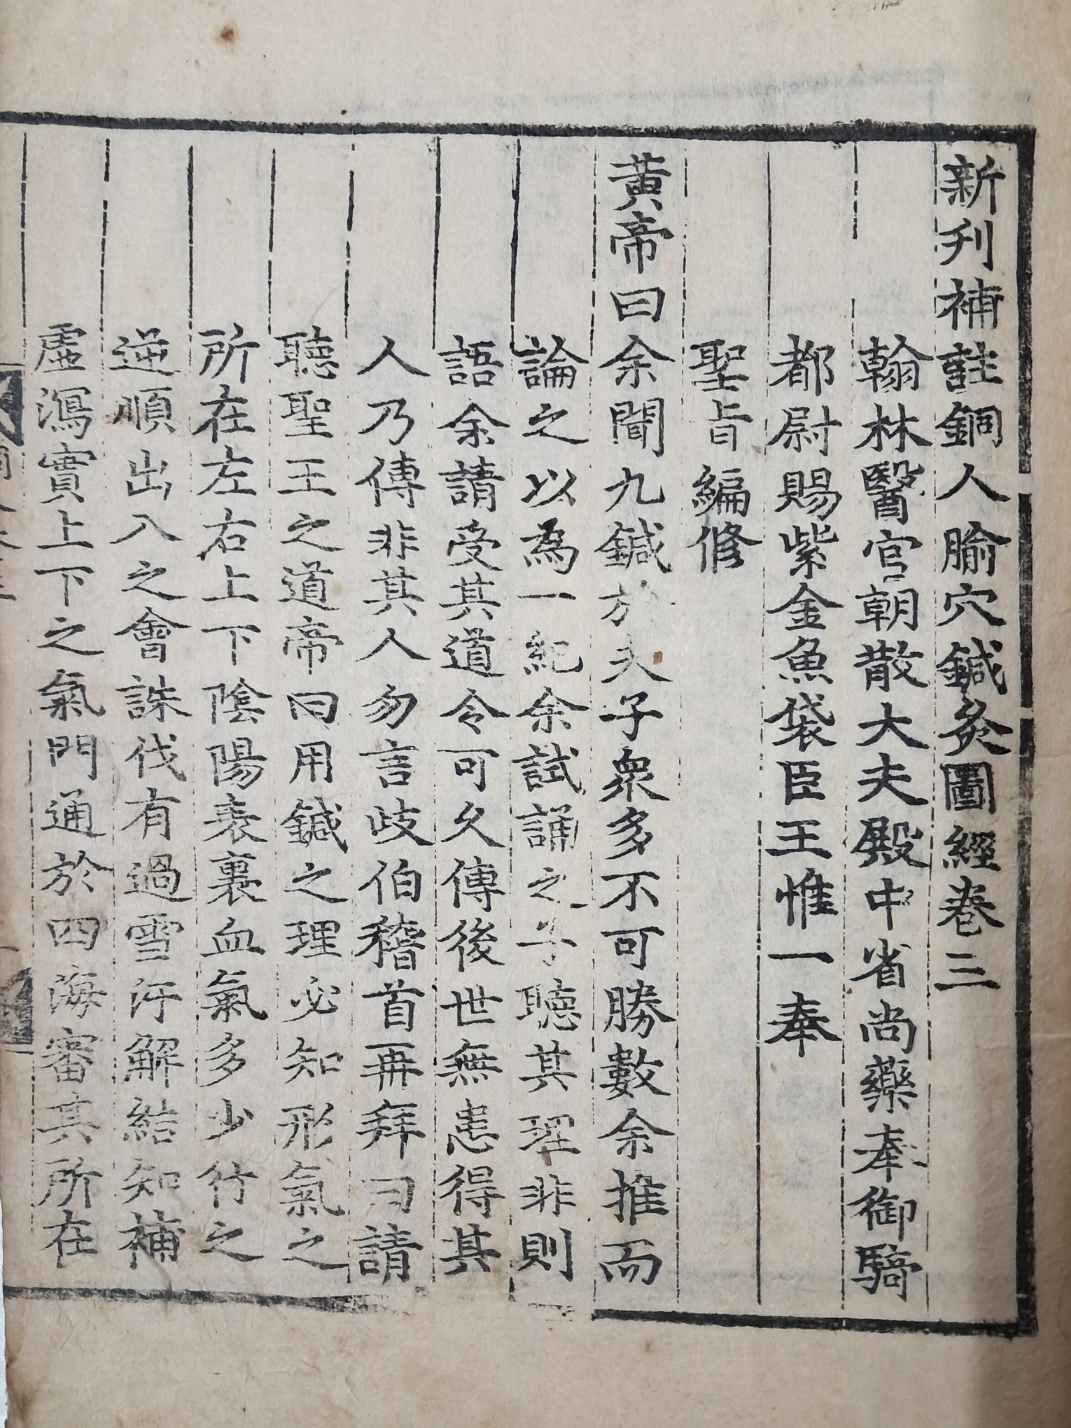 新刋補註銅人腧穴鍼灸圖經卷三
翰林醫官朝散大夫殿中省尚藥奉御騎
都尉賜紫金魚袋臣王惟一奉
聖旨編修
黃帝曰余聞九鍼於夫子衆多不可勝數余推而
論之以為一紀余試誦之子聽其理非則
語余請受其道令可久傳後世無患得其
人乃傳非其人勿言歧伯稽首再拜曰請
聽聖王之道帝曰用鍼之理必知形氣之
所在左右上下陰陽表裏血氣多少行之
逆順出入之會誅伐有過雪汙解結知補
虛瀉實上下之氣門通於四海審其所在